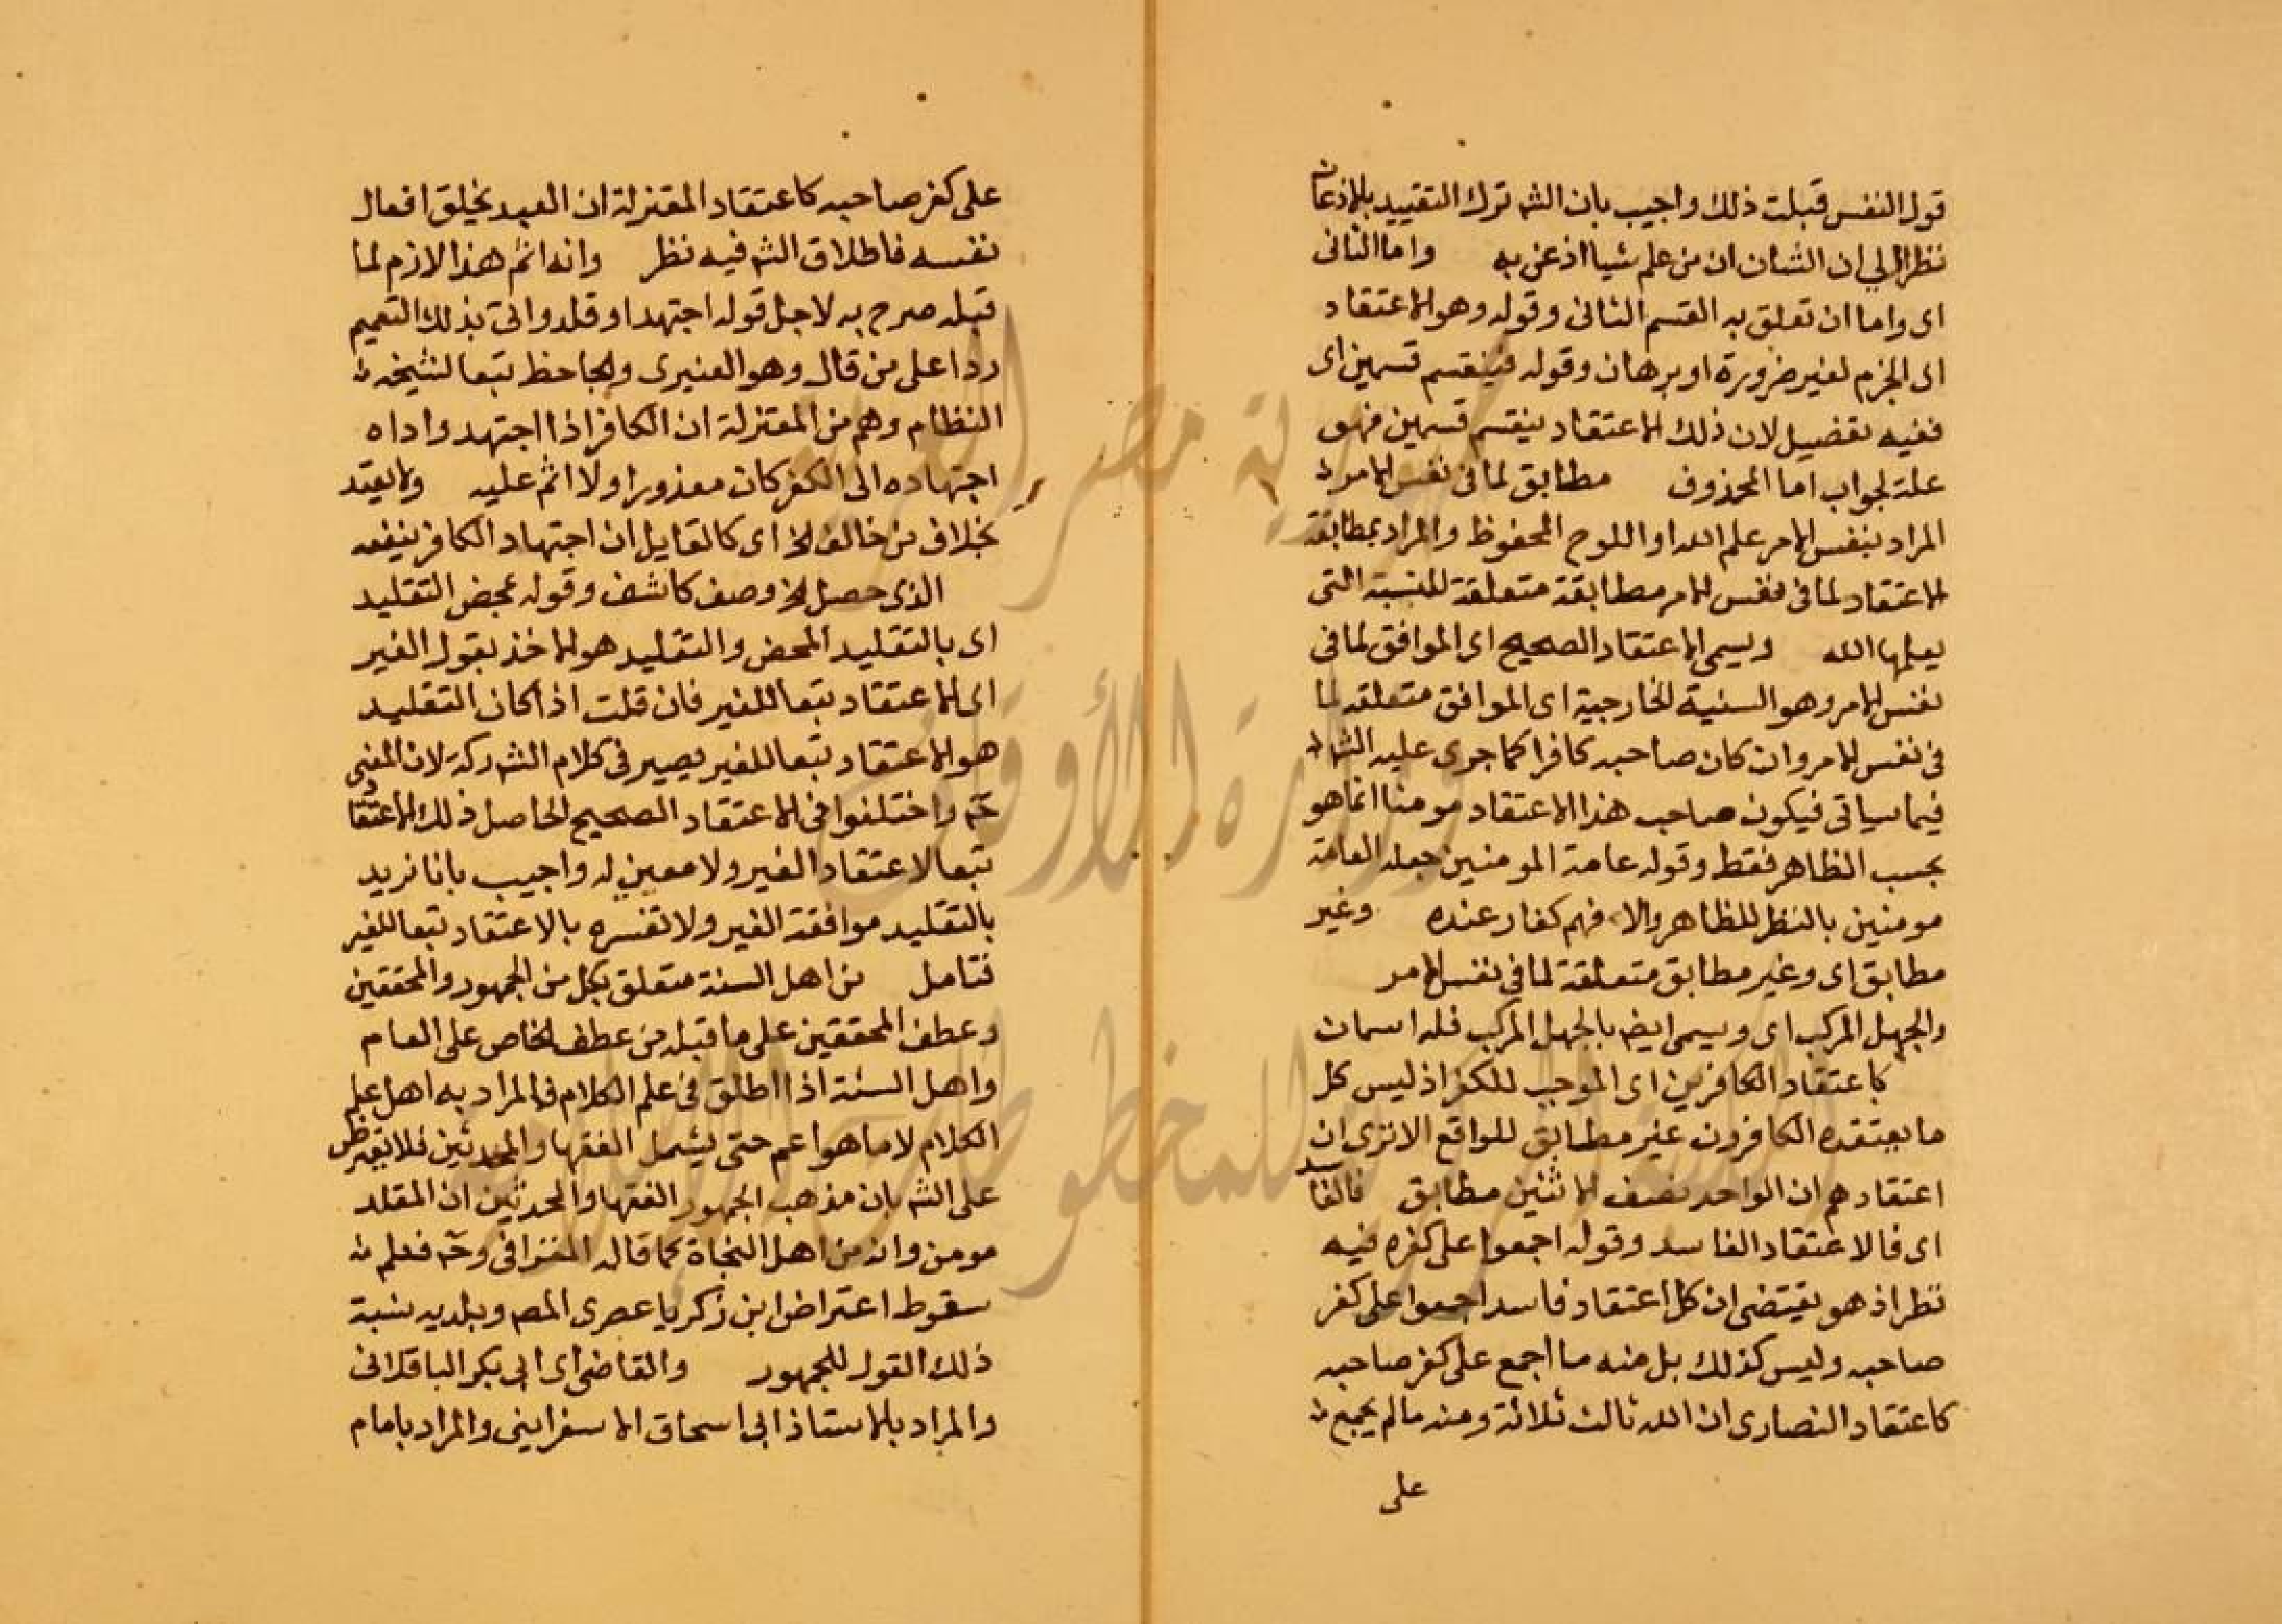 قول النفس قبلت ذلك واجيب بان الشه ترك التقييد بالاذعان
نظرا الي ان الشان ان من علم شيا اذعن به واما الثانى
اى واما ان تعلق به القسم الثانى وقوله وهو الاعتقاد
اى الجزم لغير ضرورة او برهان وقوله فينقسم قسمين اى
ففيه تفصيل لان ذلك الاعتقاد ينقسم قسمين فهو
علة لجواب اما المحذوف مطابق لما فى نفس الامر
المراد بنفس الامر علم الله او اللوح المحفوظ والمراد بمطابقة
الاعتقاد لما فى نفس الامر مطابقة متعلقة للنسبة التى
يعلمها الله ويسمى الاعتقاد الصحيح اى الموافق لما فى
نفس الامر وهو النسبة الخارجية اى الموافق متعلقه لما
فى نفس الامر وان كان صاحبه كافرا كما جرى عليه الشه
فيما سياتى فيكون صاحب هذا الاعتقاد مومنا انما هو
بحسب الظاهر فقط وقوله عامة المومنين جعله العامة
مومنين بالنظر للظاهر والا فهم كفار عنده وغير
مطابق اى وغير مطابق متعلقة لما فى نفس الامر
والجهل المركب اى ويسمى ايض بالجهل المركب فله اسمان
كاعتقاد الكافرين اى الموجب للكفر اذ ليس كل
ما يعتقده الكافرون غير مطابق للواقع الا ترى ان
اعتقادهم ان الواحد نصف الاثنين مطابق فالفاسد
اى فالاعتقاد الفاسد وقوله اجمعوا على كفره فيه
نظر اذ هو يقتضى ان كل اعتقاد فاسد اجمعوا على كفر
صاحبه وليس كذلك بل منه ما اجمع على كفر صاحبه
كاعتقاد النصارى ان الله ثالث ثلاثة ومنه مالم يجمع
على
على كفر صاحبه كاعتقاد المعتزلة ان العبد يخلق افعال
نفسه فاطلاق الشه فيه نظر وانه اثم هذا لازم لما
قبله صرح به لاجل قوله اجتهد او قلد واتى بذلك التعميم
ردا على من قال وهو العنبرى والجاحظ تبعا لشيخه
النظام وهم من المعتزلة ان الكافر اذا اجتهد واداه
اجتهاده الى الكفر كان معذورا ولا اثم عليه ولا يعتد
بخلاف من خالف الخ اى كالقايل ان اجتهاد الكافر ينفعه
الذى حصل الخ وصف كاشف وقوله بمحض التقليد
اى بالتقليد المحض والتقليد هو الاخذ بقول الغير
اى الاعتقاد تبعا للغير فان قلت اذا كان التقليد
هو الاعتقاد تبعا للغير يصير فى كلام الشه ركة لان المعنى
ح واختلفوا فى الاعتقاد الصحيح الحاصل ذلك الاعتقاد
تبعا لاعتقاد الغير ولا معنى له واجيب بانا نريد
بالتقليد موافقة الغير ولا نفسره بالاعتقاد تبعا للغير
فتامل من اهل السنة متعلق بكل من الجمهور والمحققين
وعطف المحققين على ما قبله من عطف الخاص على العام
واهل السنة اذا اطلق فى علم الكلام فالمراد به اهل علم
الكلام لا ما هو اعم حتى يشمل الفقها والمحدثين فلا يعترض
على الشه بان مذهب الجمهور الفقها والمحدثين ان المقلد
مومن وانه من اهل النجاة كما قاله وح فعلم
سقوط اعتراض ابن زكريا عصرى المص وبلديه بنسبة
ذلك القول للجمهور والقاضى اى ابى بكر الباقلانى
والمراد بالاستاذ ابى اسحاق الاسفراينى والمراد بامام
جمهورية مصر العربية
وزارة الأوقاف
المكتبة المركزية للمخطوطات الإسلامية